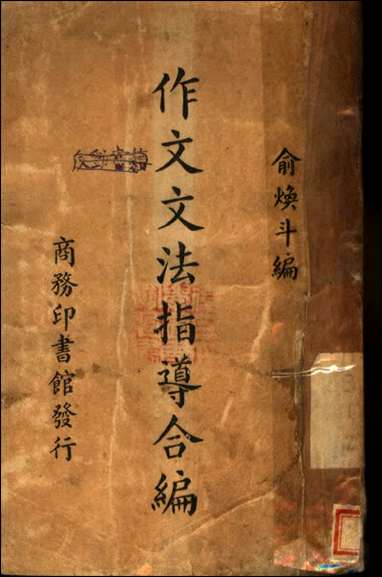 俞煥斗編
作文文法指導合編
商務印書館發行